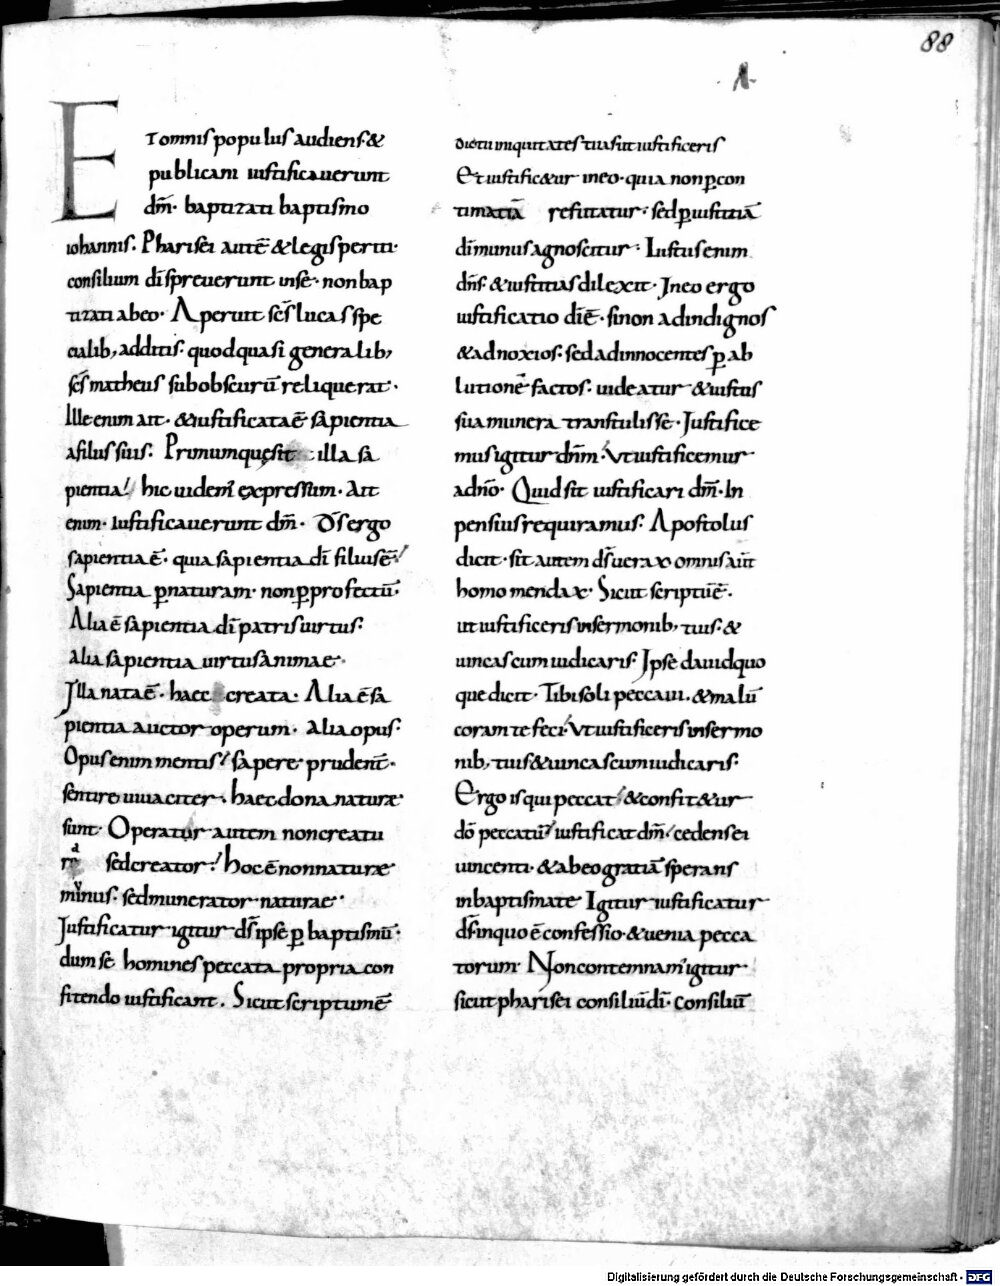 88
Et omnis populus audiens &
publicani iustificauerunt
dm̄· baptizati baptismo
iohannis· Pharisei autē & legis periti·
consilium dī spreuerunt in sē· non bap
tizati ab eo· Aperuit sc̄s lucas spe
cialib; additis· quod quasi generalib;
sc̄s matheus subobscurū reliquerat·
Ille enim ait· & iustificata ē sapientia
a filiis suis· Primum quę sit illa sa
pientia! hic uidem̄ expressum· Ait
enim· iustificauerunt dm̄· Ds̄ ergo
sapientia ē· quia sapientia dī filius ē!
Sapientia p̱ naturam· non p̱ profectū·
Alia ē sapientia dī patris uirtus·
alia sapientia uirtus animae·
Illa nata ē· haec creata· Alia ē sa
pientia auctor operum· alia opus·
Opus enim mentis! sapere prudent̄·
sentire uiuaciter· haec dona naturæ
sunt· Operatur autem non creatu
sed creator! hoc ē non naturæ
munus· sed munerator naturae·
Iustificatur igitur ds̄ ipse p̱ baptismū·
dum se homines peccata propria con
fitendo iustificant· Sicut scriptum ē
Dic tu iniquitates tuas ut iustificeris
Et iustific&ur in eo· quia non p̱ con
timatiā refutatur· sed p̱ iustitiā
dī munus agnoscitur· Iustus enim
dn̄s· & iustitias dilexit· In eo ergo
iustificatio dī ē· si non ad indignos
& ad noxios· sed ad innocentes p̱ ab
lutionē factos· uideatur & iustus
sua munera transtulisse· Iustifice
mus igitur dn̄m· Ut iustificemur
a dn̄o· Quid sit iustificari dm̄· In
pensius requiramus· Apostolus
dicit· sit autem ds̄ uerax omnis aūt
homo mendax· Sicut scriptū ē·
ut iustificeris in sermonib; tuis· &
uincas cum iudicaris· Ipse dauid quo
que dicit· Tibi soli peccaui· & malū
coram te feci· Ut iustificeris in sermo
nib; tuis & uincas cum iudicaris·
Ergo is qui peccat! & confit&ur
dō peccatū! iustificat dm̄! cedens ei
uincenti· & ab eo gratiā sperans
in baptismate Igitur iustificatur
ds̄· in quo ē confessio· & uenia pecca
torum Non contemnam̄ igitur
sicut pharisei consiliū dī· Consiliū
Digitalisierung gefördert durch die Deutsche Forschungsgemeinschaft - DFG